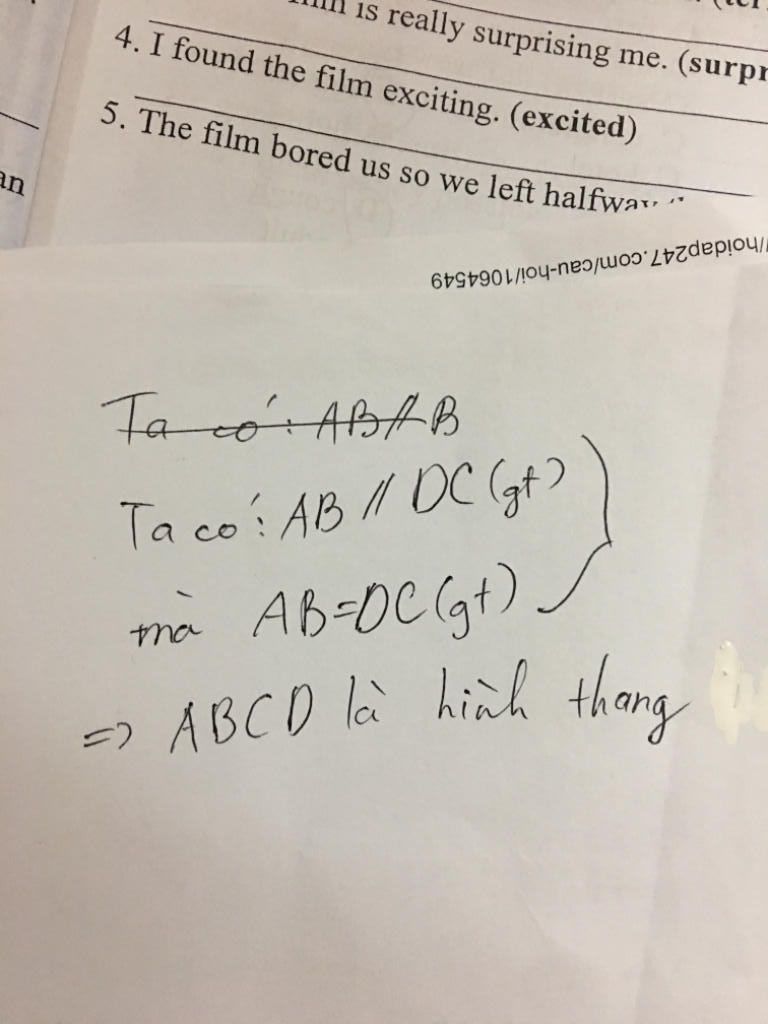 is really surprising me. (surpr
4. I found the film exciting. (excited)
5. The film bored us so we left halfway
an
/hoidap247.com/cau-hoi/1064549
Ta có: AB // B
Ta có: AB // DC (gt)
mà AB = DC (gt)
=> ABCD là hình thang